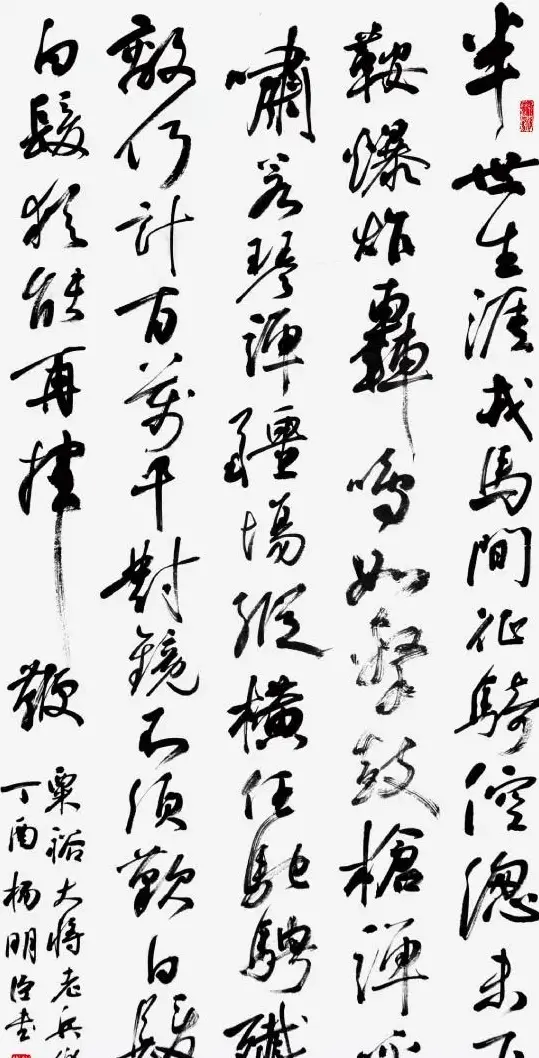 半世生涯戎馬間征騎倥傯未下
鞍爆炸轟鳴如擊鼓槍彈呼
嘯若琴彈疆場縱橫任馳騁殲
敵何計百萬千對鏡不須歎白髮
白髮猶能再揮鞭
粟裕大將老兵樂
丁酉楊明臣書